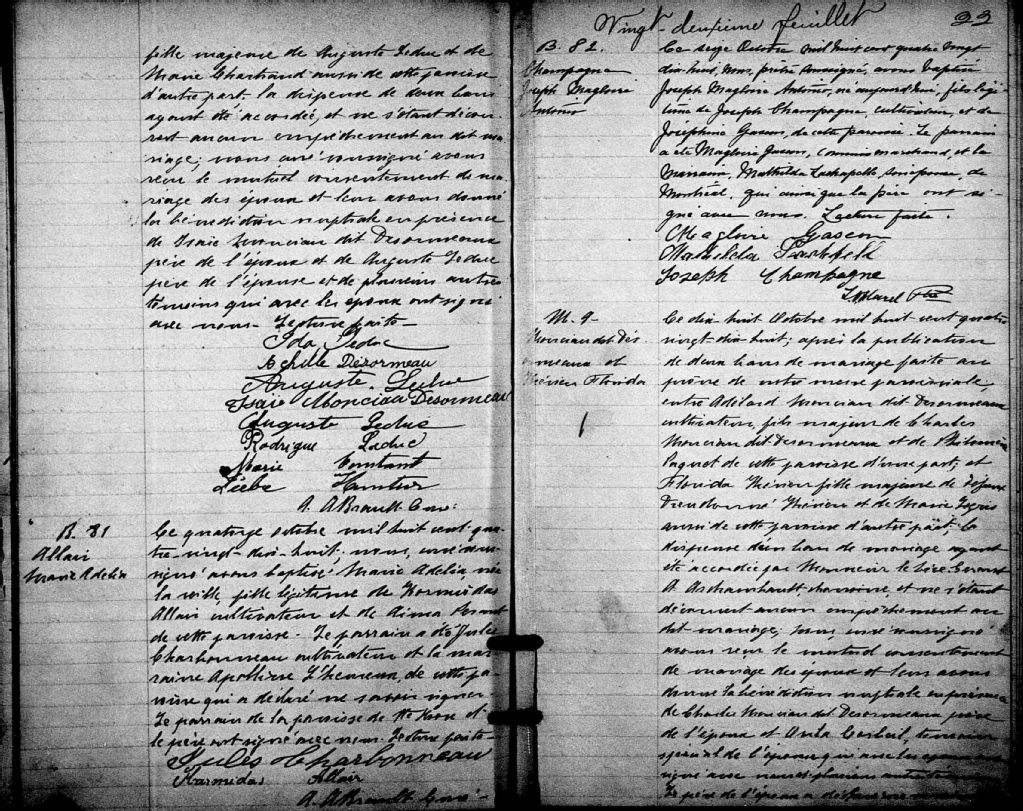 fille majeure de Auguste Leduc et de
Marie Chartrand aussi de cette paroisse
d'autre part. la dispense de deux bans
ayant été accordée, et ne s'étant décou-
vert aucun empêchement au dit ma-
riage; nous curé soussigné avons
reçu le mutuel consentement de ma-
riage des époux et leur avons donné
la bénédiction nuptiale en présence
de Isaie Moncian dit Desormeaux
père de l'époux et de Auguste Leduc
père de l'épouse et de plusieurs autres
témoins qui avec les époux ont signé
avec nous. Lecture faite -
Ida Leduc
Achille Désormeau
Auguste Leduc
Isaie Moncian Desormeau
Auguste Leduc
Rodrigue Leduc
Marie Constant
A. A. Brault Curé
B. 81
Allair
Marie Adelia
Ce quatorze octobre mil huit cent qua-
tre-vingt-dix-huit, nous, curé sous-
signé avons baptisé Marie Adelia née
la veille, fille légitime de Hormidas
Allair cultivateur et de
de cette paroisse. Le parrain a été Jules
Charbonneau cultivateur et la mar-
raine Apolline L'heureux, de cette pa-
roisse qui a déclaré ne savoir signer.
Le parrain de la paroisse de Ste Rose et
le père ont signé avec nous. Lecture faite
Jules Charbonneau
Harmidas Allair
A. A. Brault Curé
Vingt-deuxième feuillet
22
B. 82.
Champagne
Joseph Magloire
Antonio
Ce seize Octobre mil huit cent quatre vingt
dix huit, nous, prêtre soussigné, avons baptisé
Joseph Magloire Antonio, né aujourd'hui, fils légi-
time de Joseph Champagne, cultivateur, et de
Josephine Gascon, de cette paroisse. Le parrain
a été Magloire Gascon, Commis marchand, et la
Marraine, Mathilda Lachapelle, son épouse, de
Montréal, qui ainsi que le père ont si-
gné avec nous. Lecture faite.
Magloire Gascon
Joseph Champagne
M. 9-
Moncian dit Dés-
ormeaux et
Thérien Florida
Ce dix huit Octobre mil huit cent quatre
vingt-dix-huit; après la publication
de deux bans de mariage faite au
prône de notre messe paroissiale,
entre Adélard Moncian dit Desormeaux
cultivateur, fils majeur de Charles
Moncian dit Desormeaux et de Philomène
Paquet de cette paroisse d'une part; et
Florida Thérien fille majeure de
Dieudonné Thérien et de Marie
aussi de cette paroisse d'autre part; la
dispense d'un ban de mariage ayant
été accordée par Monsieur le Vice-Gérant
A. Archambault, chanoine, et ne s'étant
découvert aucun empêchement au
dit mariage; nous curé soussigné
avons reçu le mutuel consentement
de mariage des époux et leur avons
donné la bénédiction nuptiale en présence
de Charles Moncian dit Desormeaux père
de l'époux et Corbeil, témoin
spécial de l'épouse qui avec les époux ont
signé avec nous et plusieurs autres témoins
Le père de l'époux a déclaré